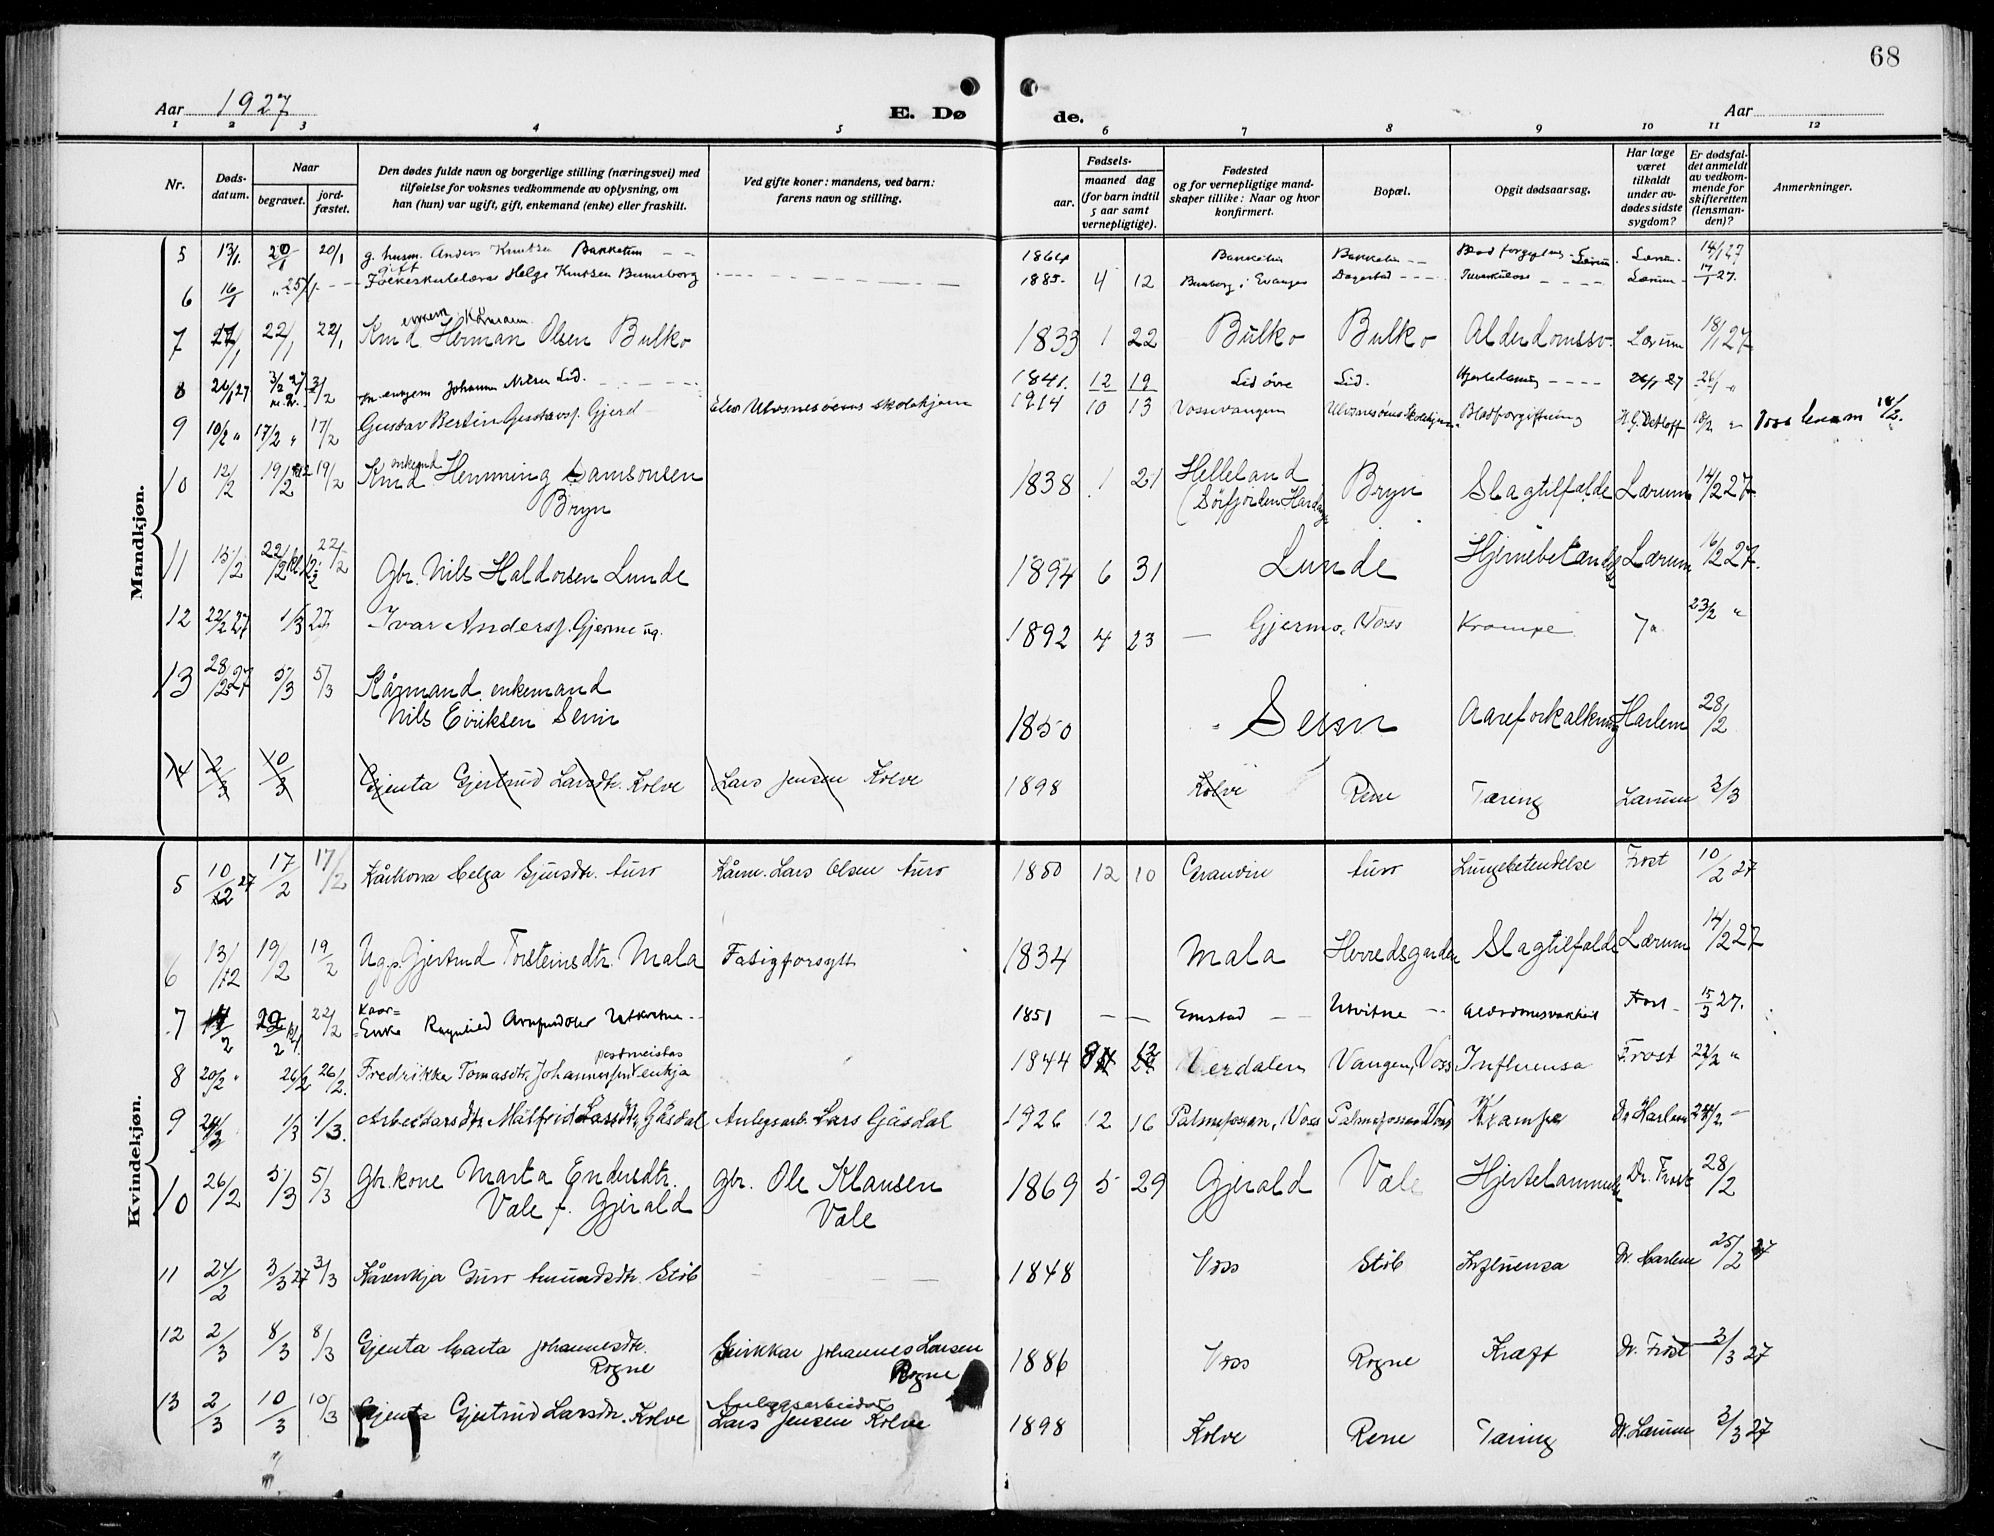 68
Aar 1927
E. Døde.
Aar
1 2 3 4 5 6 7 8 9 10 11 12
Nr.
Døds-
datum.
Naar
begravet.
jord-
fæstet.
Den dødes fulde navn og borgerlige stilling (næringsvei) med
tilføielse for voksnes vedkommende av oplysning, om
han (hun) var ugift, gift, enkemand (enke) eller fraskilt.
Ved gifte koner: mandens, ved barn:
farens navn og stilling.
Fødsels-
aar. maaned dag
(for barn indtil
5 aar samt
vernepligtige).
Fødested
og for vernepligtige mand-
skaper tillike: Naar og hvor
konfirmert.
Bopæl.
Opgit dødsaarsag.
Har læge
været
tilkaldt
under av-
dødes sidste
sygdom?
Er dødsfal-
det anmeldt
av vedkom-
mende for
skifteretten
(lensman-
den)?
Anmerkninger.
Mandkjøn.
5 13/1 20/1 20/1 g. husm. Anders Knutsen Bakketun 1864 Bakketun Lærum 14/1 27
gift
6 16/1 25/1 Folkeskulelærar Helge Knutsen 1885 4 12 Dagestad Tuberkulose Lærum 17/1 27.
enkem. Kårmann
7 22/1 22/1 Knud Herman Olsen Bulko 1833 1 22 Bulko Bulko Alderdomssv. Lærum 18/1 27
8 3/2 Johannes Nilsen Lid. 1841. 12 19 Lid øvre Lid. 26/1 "
9 10/2 " 17/2 " 17/2 Gustav Bertin Gustavsf. Gjerd Elev Ulvsnesøens skolehjem 1914 10 13 Vossevangen Ulvsnesøens Skolehjem Blodforgiftning 18/2
enkemd
10 12/2 19/2 19/2 Knud Henning Samsonsen 1838 1 21 Helleland Bryn Slagtilfælde Lærum 14/2 27
Bryn (Sørfjorden Hardanger
11 15/2 22/2 22/2 Gbr. Nils Haldorsen Lunde 1894 6 31 Lunde Hjernebetændelse Lærum 16/2 27.
12 22/2 27 1/3 27 Ivar Andersf. Gjerme ug. 1892 4 23 — Gjermo, Voss Krampe Ja 23/2 "
13 28/2 27 5/3 5/3 Kårmand enkemand
Nils Eriksen Seim 1850 Seim Aareforkalkning Harlem 28/2
14 2/3 10/3 Gjenta Gjertrud Larsdtr. Kolve Lars Jensen Kolve 1898 Kolve Rene Tæring Lærum 3/3
Kvindekjøn.
5 10/2 27 17/2 17/2 Kårkona Helga Sjursdtr. Kårm. Lars Olsen 1850 12 10 Grandvin Lungebetendelse Frost 10/2 27
6 13/2 19/2 19/2 Ugp. Gjertrud Torsteinsdtr. Mala Fatigforsyt 1834 Mala Herredsgarden Slagtilfælde Lærum 14/2 27
Kaar=
7 22/2 Enke Ragnhild 1851 — — Emstad Alderdomssvakheit Frost 27.
postmeistar
8 20/2 " 26/2 26/2. Fredrikke Tomasdtr. Johannesfsenkja 1844 12 Verdalen Vangen, Voss Influensa Frost 22/2 "
9 1/3 1/3. Arbeidarsdtr. Målfrid Larsdtr. Gåsdal Anlegsarb. Lars Gåsdal 1926 12 16 Palmafossen, Voss Palmafossen, Voss Krampe Dr Harlem
10 26/2 5/3 5/3 Gbr. kone Marta Endresdtr. Gbr. Ole Klausen 1869 5 29 Gjerald Væle Hjertelammelse Dr. Frost 28/2
Væle f. Gjerald Væle
11 24/2 3/3 27 3/3 Kårenkja Guro Amundsdtr. Støb 1848 Voss Støb Influensa Dr. Harlem 25/2 27
12 2/3 8/3 8/3 Gjenta Marta Johannesdtr. Johannes Larsen 1886 Voss Rogne Kræft Dr. Frost 3/3 27
Rogne Rogne
Anleggsarbeidar
13 2/3 10/3 10/3 Gjenta Gjertrud Larsdtr. Kolve Lars Jensen Kolve 1898 Kolve Rene Tæring Dr. Lærum 3/3 27